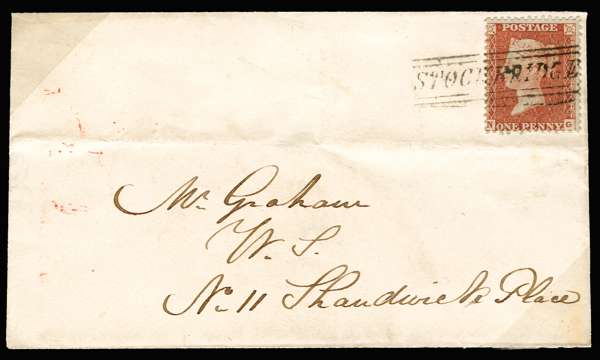 POSTAGE
STOCKBRIDGE
N ONE PENNY G
Mr. Graham
W. S.
No. 11 Shandwick Place